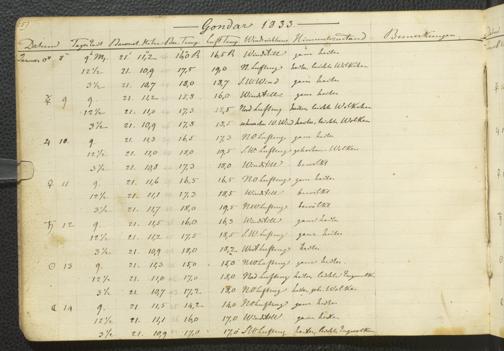 Gondar 1833.
Datum Tageszeit Baromet. Höhe Bar. Temp. Luft Temp. Windrichtung Himmelszustand Bemerkungen
8 9 21. 11,2 16,0 R 16,5 R Windstill ganz heiter
12½ 21. 10,9 17,5 19,0 N. Luftzug heiter leichte Wölkchen
3½ 21. 10,7 18,0 18,7 S.W. Wind ganz heiter
☿ 9 9. 21. 11,2 16,0 Windstill ganz heiter
12½ 21. 11,0 17,3 Nord Luftzug heiter leichte Wölkchen
3½ 21. 10,9 17,3 schwacher W. Wind heiter, leichte Wolken
♃ 10. 9. 21. 16,5 17,3 N.O Luftzug ganz heiter
12½ 21. 11,0 18,0 19,5 S.W. Luftzug Wolken
3½ 21. 10,8 17,3 18,0 Windstill bewölkt
♀ 11 9. 21. 11,6 16,5 16,5 N.O Luftzug ganz heiter
12½ 21. 11,1 17,3 18,5 Windstill bewölkt
3½ 21. 11,7 18,0 19,5 N.W Luftzug bewölkt
♄ 12 9. 21. 11,5 16,0 16,3 Windstill ganz heiter
12½ 21. 11,2 17,5 18,5 S.W. Luftzug ganz heiter
3½ 21. 10,9 18,0 18,2 West Luftzug heiter
☉ 13 9. 21. 15,0 N.W Luftzug ganz heiter.
12½ 21. 11,0 17,0 18,0 Nord Luftzug heiter, leichte
3½ 21. 10,7 17,2 18,0 N.O Luftzug heiter, Wolken
☾ 14 9. 21. 11,5 14,2 14,0 N.O Luftzug ganz heiter
12½ 21. 11,1 16,0 17,0 Windstill ganz heiter
3½ 21. 10,9 17,0 S.W Luftzug heiter, leichte